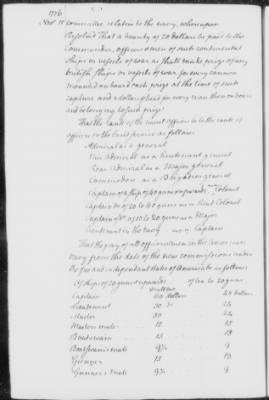 1776
Nov. 15 committee relative to the navy, whereupon
Resolved That a bounty of 20 dollars be paid to the
Commanders, officers & men of such continental
ships or vessels of war as shall make prize of any
british ships or vessels of war for every cannon
mounted on board each prize at the time of such
capture and 8 dollars per head for every man then on board
and belonging to such prize:
That the rank of the naval officers be to the rank of
officers in the land service as follows
Admiral as a general
Vice Admiral as a lieutenant general
Rear Admiral as a Major general
Commodore as a Brigadier general
Captain of a ship of 40 guns & upwards " Colonel
Captain do of 20 to 40 guns as a lieut Colonel
Captain do of 10 to 20 guns as a Major
lieutenant in the navy as a Captain
That the pay of all officers & men in the American
Navy from the date of the new commissions under
the free and independant states of America be as follows:
Of ships of 20 guns & upwards. of 10 to 20 guns
Captain 60 dollars 48 dollars
Lieutenant 30 do 24
Master 30 24
Masters mate 15 15
Boatswain 15 13
Boatswains mate 9½ 9
Gunner 15 13
Gunner's mate 9½ 9